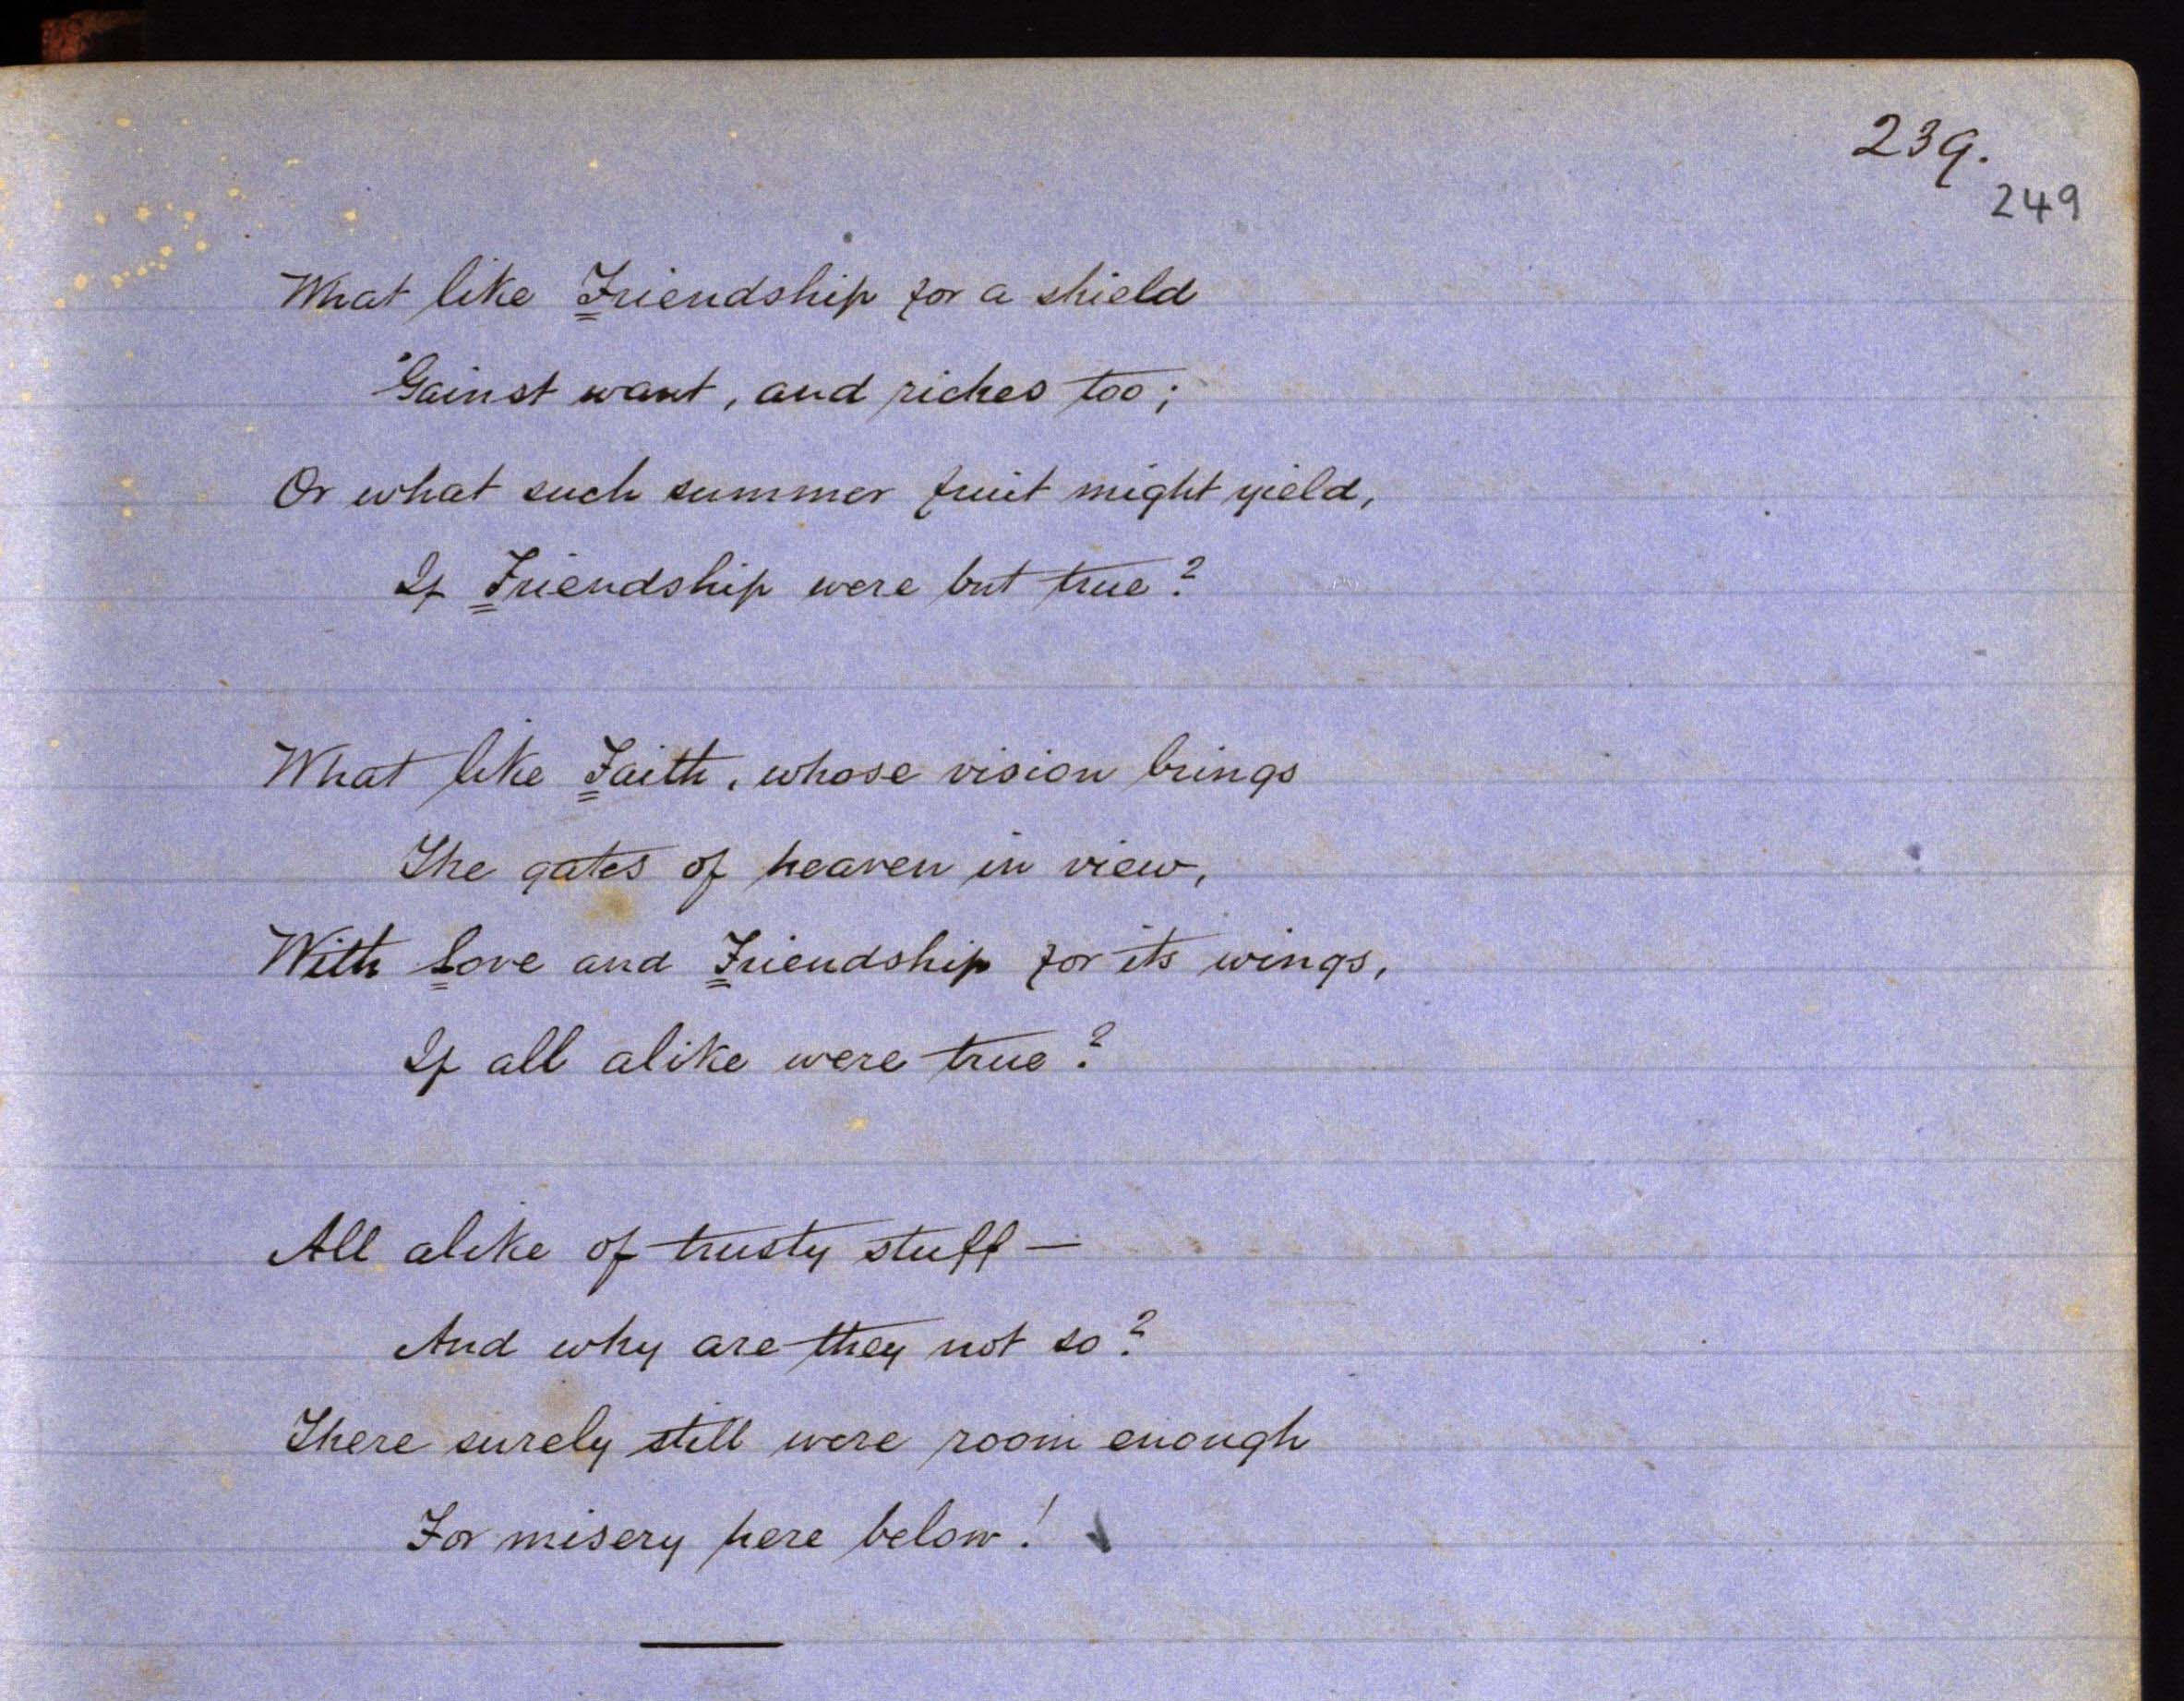 239.
249
What like Friendship for a shield
'Gainst want, and riches too;
Or what such summer fruit might yield,
If Friendship were but true?
What like Faith, whose vision brings
The gates of heaven in view,
With Love and Friendship for its wings,
If all alike were true?
All alike of trusty stuff —
And why are they not so?
There surely still were room enough
For misery here below!